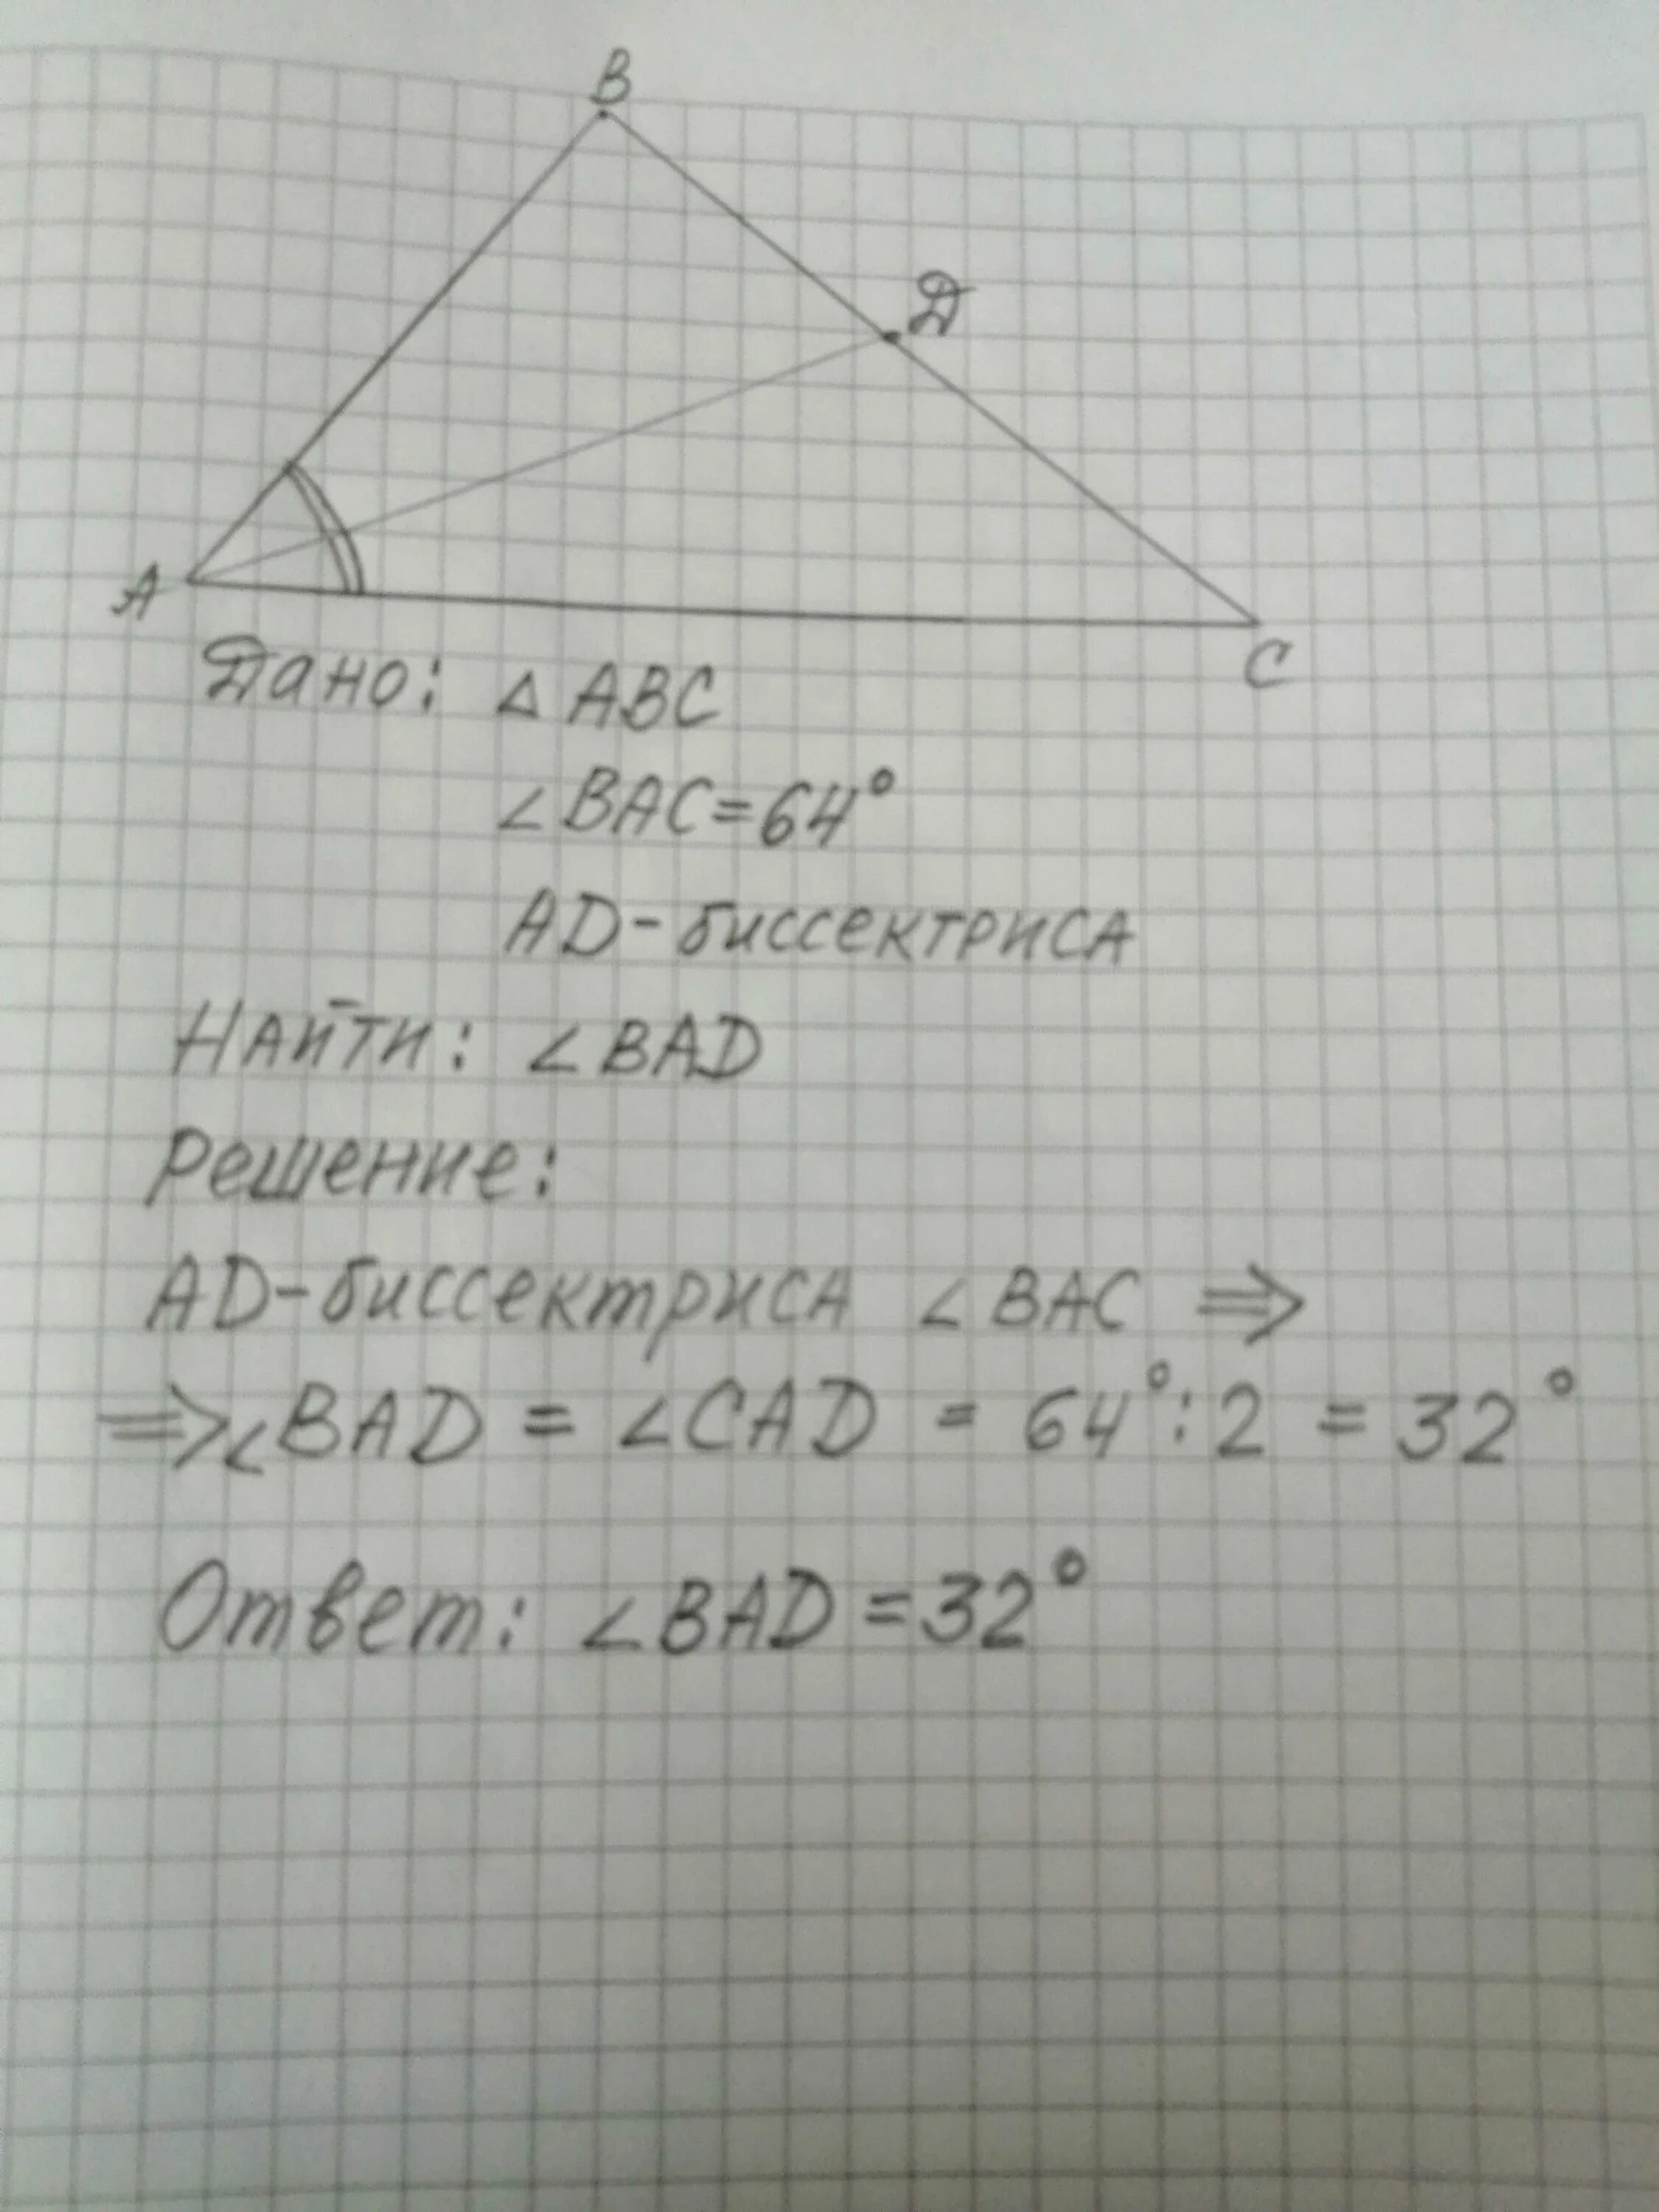 B
Д
A
C
Дано: △ ABC
∠BAC=64°
AD-биссектриса
Найти: ∠BAD
Решение:
AD-биссектриса ∠BAC ⇒
⇒∠BAD = ∠CAD = 64°:2 = 32°
Ответ: ∠BAD=32°